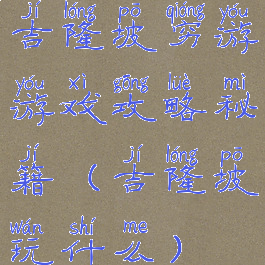 jí lóng pō qióng yóu
吉隆坡穷游
yóu xì gōng lüè mì
游戏攻略秘
jí jí lóng pō
籍（吉隆坡
wán shí me
玩什么）